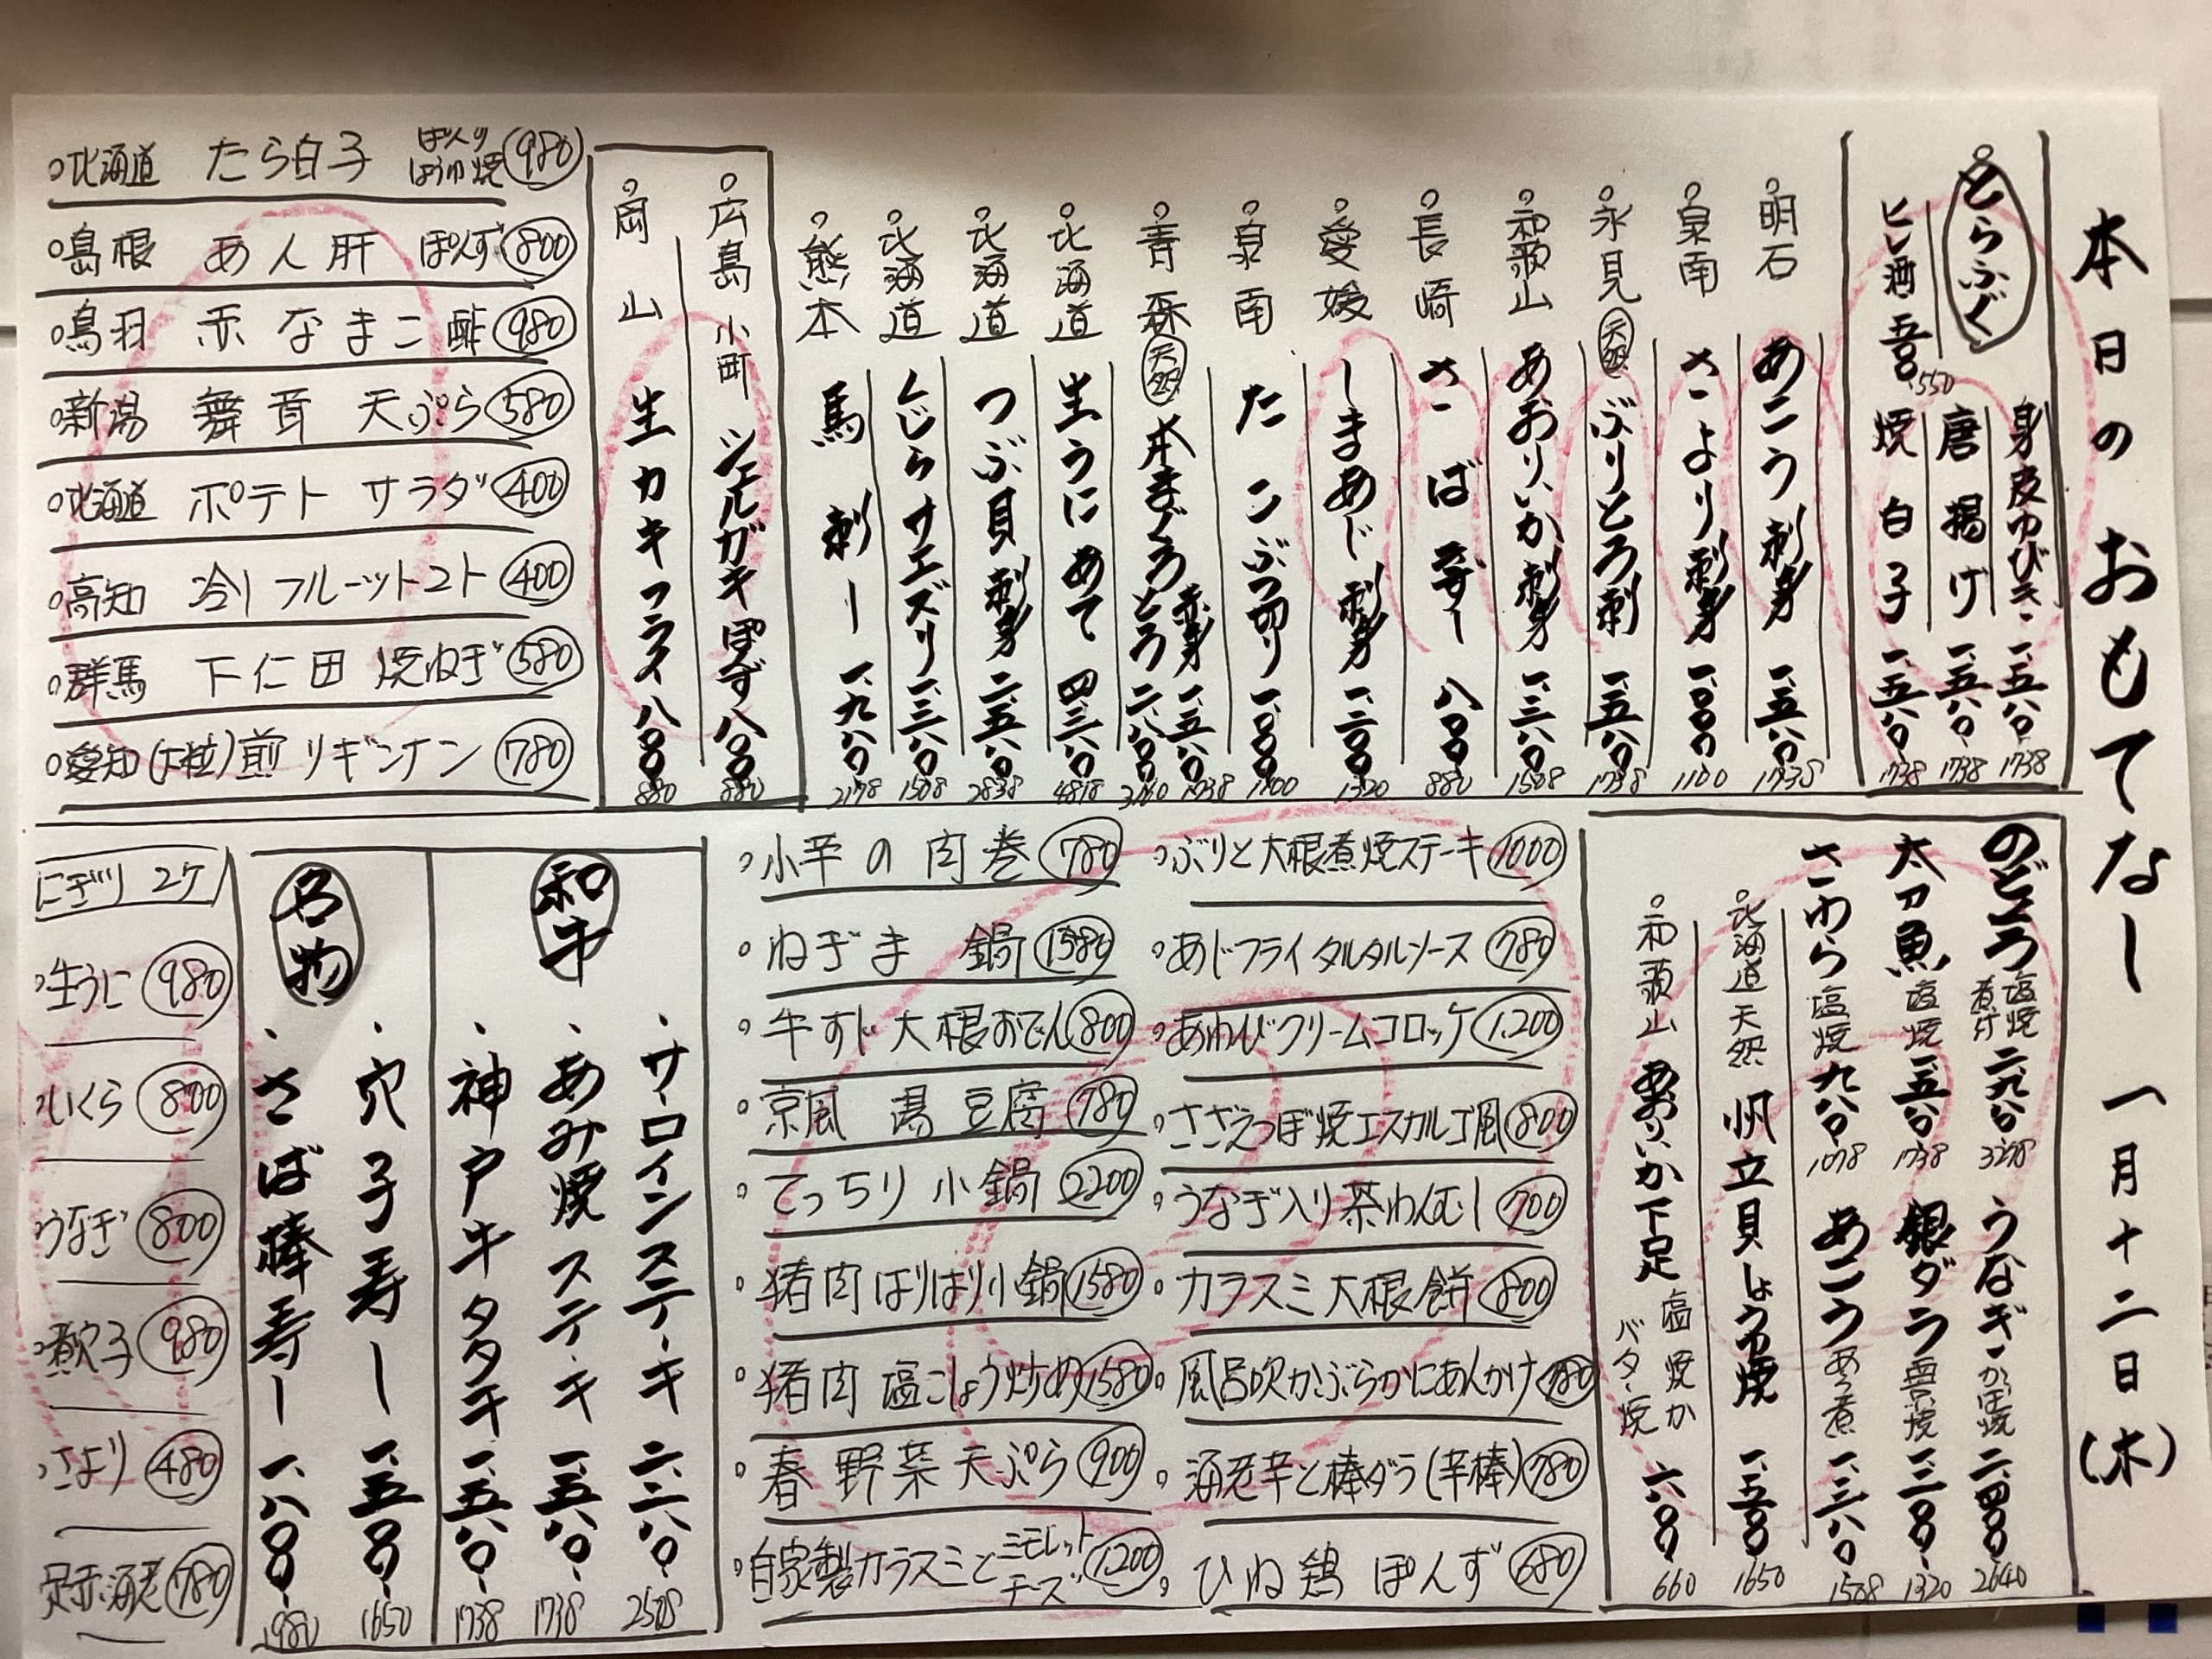 本日のおもてなし 一月十二日(木)
とらふぐ
身皮ゆびき 一、五八〇 1738
唐揚げ 一、五八〇 1738
ヒレ酒 五〇〇 550
焼白子 一、五八〇 1738
明石 あこう刺身 一、五八〇 1738
泉南 さより刺身 一、〇〇〇 1100
氷見 天然 ぶりとろ刺 一、五八〇 1738
和歌山 あおりいか刺身 一、三八〇 1508
長崎 さば 造り 八〇〇 880
愛媛 しまあじ刺身 一、二〇〇 1320
泉南 たこぶつ切り 一、〇〇〇 1100
青森 天然 本まぐろ
赤身 一、五八〇 1738
とろ 二、八〇〇
北海道 生うにあて 四、三八〇 4818
北海道 つぶ貝刺身 二、五八〇 2838
北海道 くじらサエズリ 一、三八〇 1508
熊本 馬刺し 一、九八〇 2178
広島 小町 シェルガキぽんず 八〇〇 880
岡山 生カキフライ 八〇〇 880
北海道 たら白子 980
島根 あん肝 ぽんず 800
鳥羽 赤なまこ酢 980
新潟 舞茸 天ぷら 580
北海道 ポテトサラダ 400
高知 冷しフルーツトマト 400
群馬 下仁田 焼ねぎ 580
愛知(大粒) 煎りギンナン 780
のどぐろ 塩焼 煮付 二、九八〇 3278
太刀魚 塩焼 一、五八〇 1738
さわら 塩焼 九八〇 1078
うなぎ かば焼 二、四〇〇 2640
銀ダラ 西京焼 一、二〇〇 1320
あこう あら煮 一、三八〇 1508
北海道 天然 帆立貝しょうゆ焼 一、五〇〇 1650
和歌山 あおりいか下足 塩焼か バター焼 六〇〇 660
ぶりと大根煮焼ステーキ 1000
あじフライタルタルソース 780
あわびクリームコロッケ 1.200
さざえつぼ焼エスカルゴ風 800
うなぎ入り茶わんむし 700
カラスミ大根餅 800
風呂吹かぶらかにあんかけ 780
海老芋と棒ダラ(芋棒) 780
ひね鶏 ぽんず 680
小芋の肉巻 780
ねぎま 鍋 1580
牛すじ大根おでん 800
京風 湯豆腐 780
てっちり小鍋 2200
猪肉はりはり小鍋 1580
猪肉 塩こしょう炒め 1580
春野菜天ぷら 900
自家製カラスミとミモレットチーズ 1200
和牛
サーロインステーキ 二、二八〇 2508
あみ焼ステーキ 一、五八〇 1738
神戸牛タタキ 一、五八〇 1738
名物
穴子寿し 一、五〇〇 1650
さば棒寿し 一、八〇〇 1980
にぎり 2ケ
生うに 980
いくら 800
うなぎ 800
煮穴子 980
さより 480
足赤海老 780